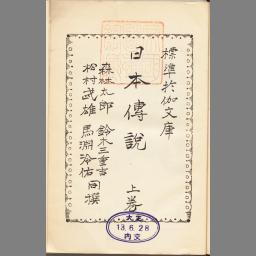 標準於伽文庫
日本傳說 上卷
森林太郎 鈴木三重吉
松村武雄 馬淵冷佑 同撰
大正
13.6.28
内交